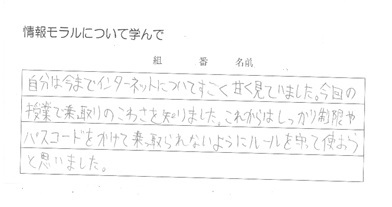 情報モラルについて学んで
組 番 名前
自分は今までインターネットについてすごく甘く見ていました。今回の
授業で乗取りのこわさを知りました。これからはしっかり制限や
パスコードを付けて乗取られないようにルールを守って使おう
と思いました。